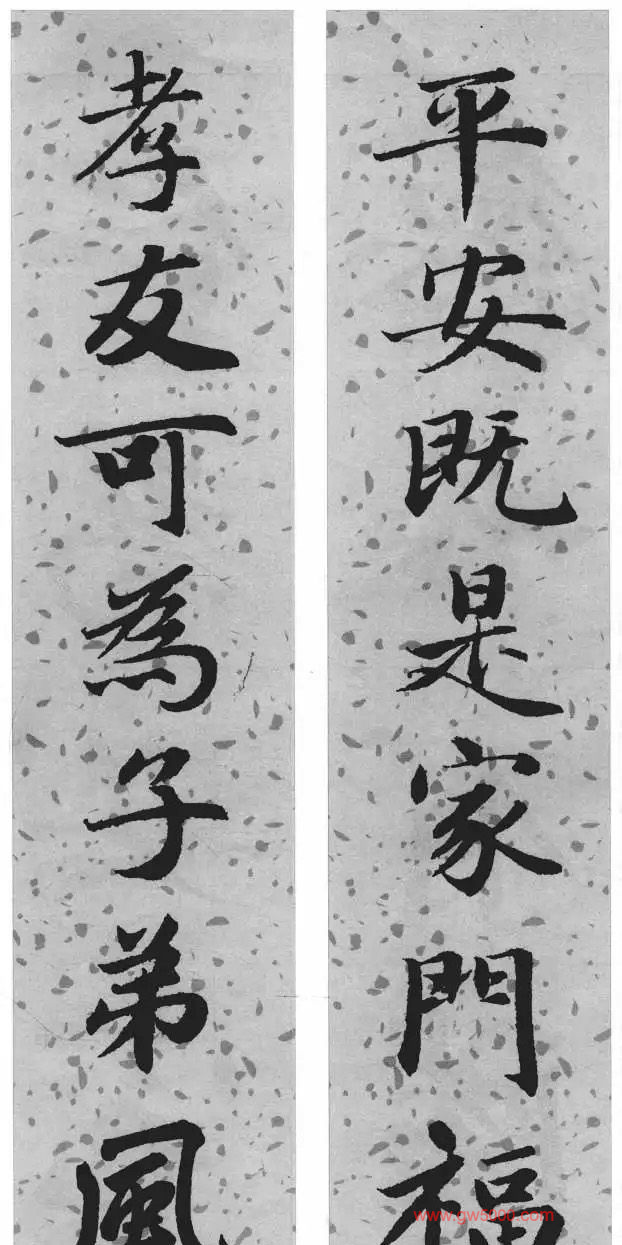 平安既是家門福
孝友可為子弟風
www.gw5000.com